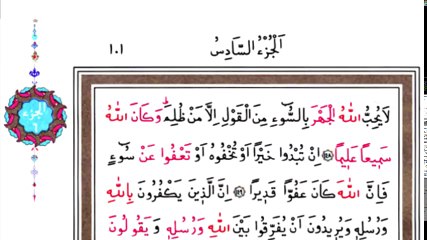 اَلْجُزْءُ السَّادِسُ
١٠١
الجزء
لَا يُحِبُّ اللّٰهُ الْجَهْرَ بِالسُّوٓءِ مِنَ الْقَوْلِ اِلَّا مَنْ ظُلِمَ وَكَانَ اللّٰهُ
سَمٖيعًا عَلٖيمًا ﴿١٤٨﴾ اِنْ تُبْدُوا خَيْرًا اَوْ تُخْفُوهُ اَوْ تَعْفُوا عَنْ سُوٓءٍ
فَاِنَّ اللّٰهَ كَانَ عَفُوًّا قَدٖيرًا ﴿١٤٩﴾ اِنَّ الَّذٖينَ يَكْفُرُونَ بِاللّٰهِ
وَرُسُلِهٖ وَيُرٖيدُونَ اَنْ يُفَرِّقُوا بَيْنَ اللّٰهِ وَرُسُلِهٖ وَيَقُولُونَ